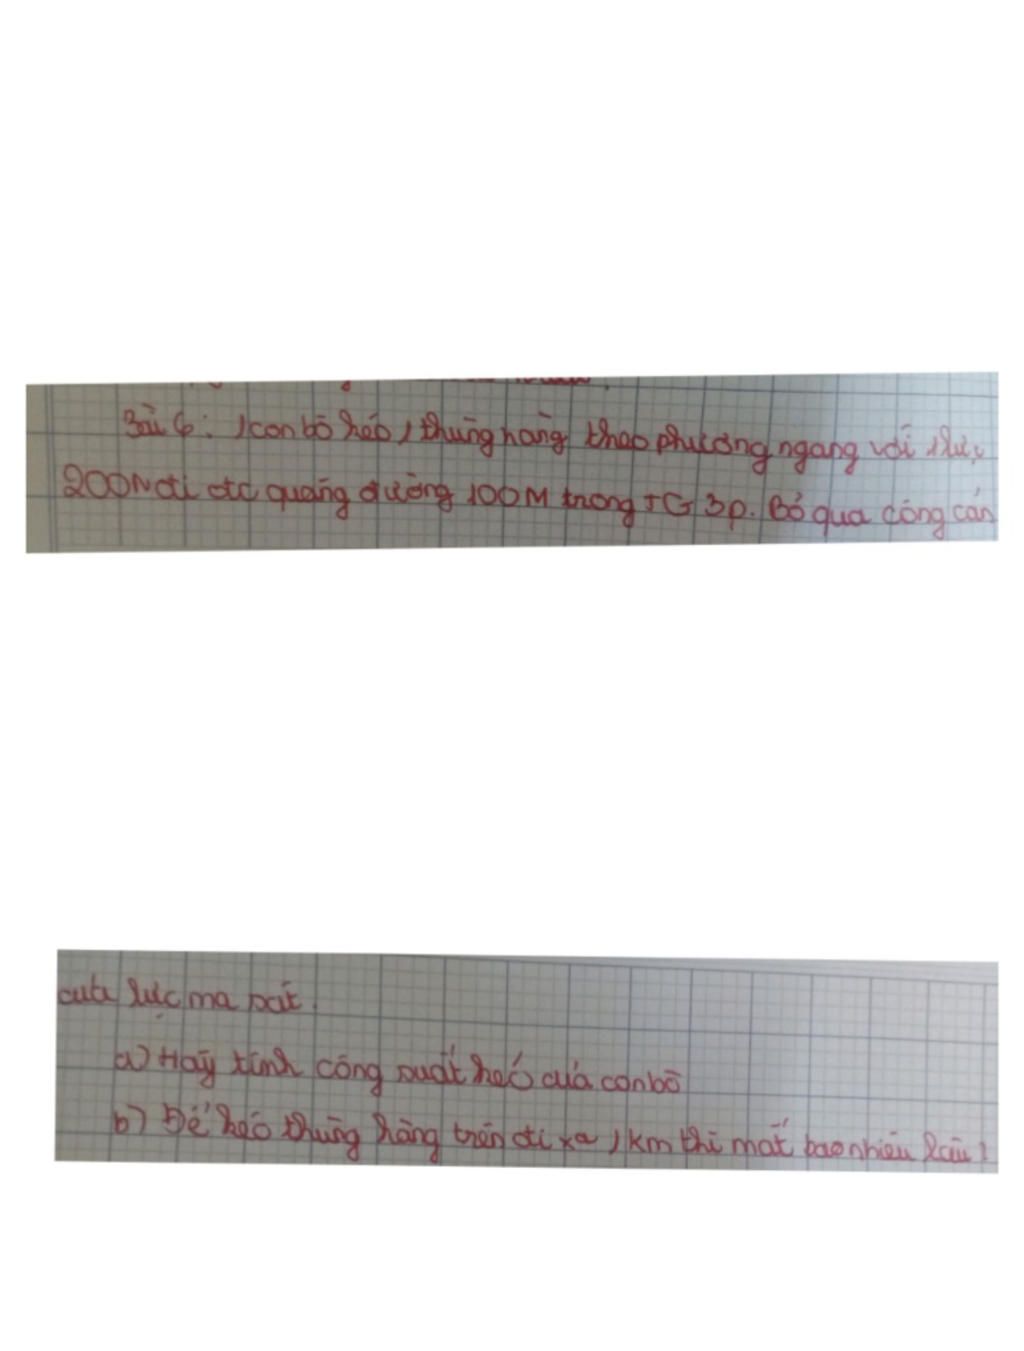 Bài 6: 1 con bò kéo 1 thùng hàng theo phương ngang với 1 lực
200N đi đc quãng đường 100M trong TG 3p. Bỏ qua công cản
của lực ma sát.
a) Hãy tính công suất kéo của con bò
b) Để kéo thùng hàng trên đi xa 1km thì mất bao nhiêu lâu?